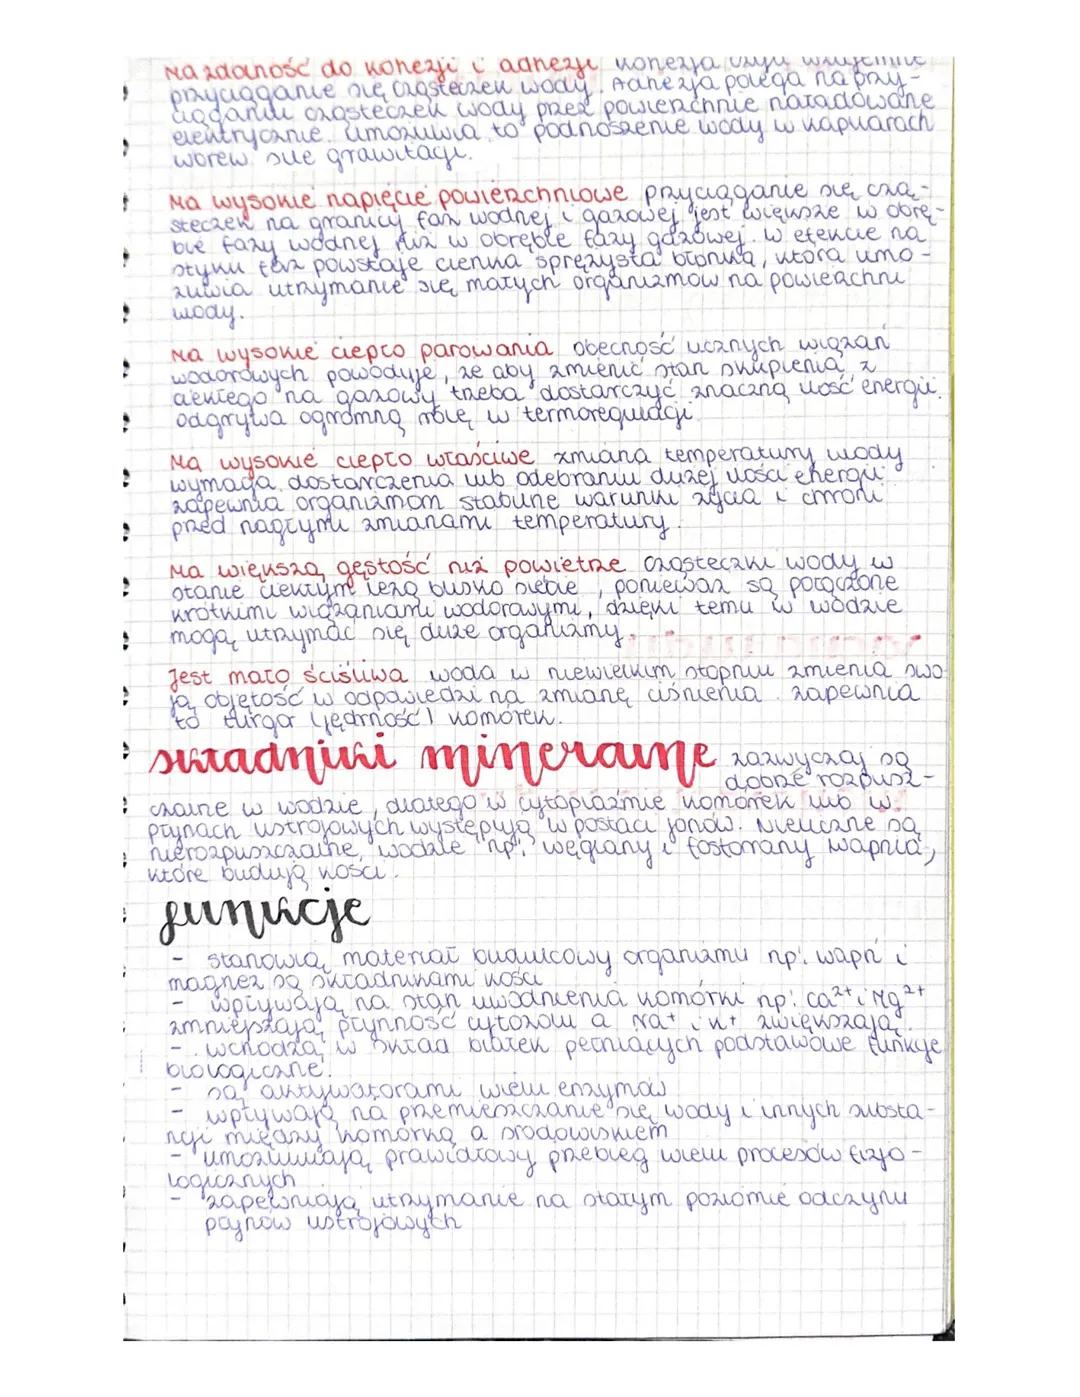 Ma zdolność do kohezji i adhezji kohezja czyli wzajemne
przyciąganie się cząsteczek wody. Adhezja polega na przy-
ciąganiu cząsteczek wody przez powierzchnie naładowane
elektrycznie. umożliwia to podnoszenie wody w kapilarach
wbrew sile grawitacji.
Ma wysokie napięcie powierzchniowe przyciąganie się czą-
steczek na granicy faz wodnej i gazowej jest większe w obrę-
bie fazy wodnej niż w obrębie fazy gazowej. w efekcie na
styku faz powstaje cienka sprężysta błonka, która umo-
żliwia utrzymanie się małych organizmów na powierzchni
wody.
Ma wysokie ciepło parowania obecność licznych wiązań
wodorowych powoduje, że aby zmienić stan skupienia z
ciekłego na gazowy trzeba dostarczyć znaczną ilość energii.
odgrywa ogromną rolę w termoregulacji
Ma wysokie ciepło właściwe zmiana temperatury wody
wymaga dostarczenia lub odebraniu dużej ilości energii.
zapewnia organizmom stabilne warunki życia i chroni
przed nagłymi zmianami temperatury.
Ma większą gęstość niż powietrze cząsteczki wody w
stanie ciekłym leżą blisko siebie, ponieważ są połączone
krótkimi wiązaniami wodorowymi, dzięki temu w wodzie
mogą utrzymać się duże organizmy.
Jest mało ściśliwa woda w niewielkim stopniu zmienia swo-
ją objętość w odpowiedzi na zmianę ciśnienia. zapewnia
to turgor (jędrność) komórek.
składniki mineralne zazwyczaj są
dobrze rozpusz-
czalne w wodzie, dlatego w cytoplazmie komórek lub w
płynach ustrojowych występują w postaci jonów. Nieliczne są
nierozpuszczalne, wodzie np: węglany i fosforany wapnia,
które budują kości.
funkcje
- stanowią materiał budulcowy organizmu np: wapń i
magnez są składnikami kości
- wpływają na stan uwodnienia komórki np: Ca²⁺ i Mg²⁺
zmniejszają płynność cytozolu a Na⁺ i K⁺ zwiększają.
- wchodzą w skład białek pełniących podstawowe funkcje
biologiczne.
- są aktywatorami wielu enzymów
- wpływają na przemieszczanie się wody i innych substa-
ncji między komórką a środowiskiem
- umożliwiają prawidłowy przebieg wielu procesów fizjo-
logicznych
- zapewniają utrzymanie na stałym poziomie odczynu
płynów ustrojowych